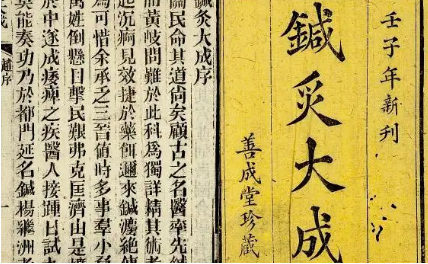 壬子年新刊
鍼灸大成
善成堂珍藏
鍼灸大成序
關民命其道尚矣顧古之名醫率先鍼
而黃岐問難於此科為獨詳精其術者
起沉痾見效捷於藥餌邇來鍼灸絕傳
為可惜余承乏三晉值時多事羣小
萬姓倒懸目擊民艱弗克匡濟山是
於中遂成痿痹之疾醫人接踵日試
莫能奏功乃於都門延名鍼楊繼洲者
成
趙序